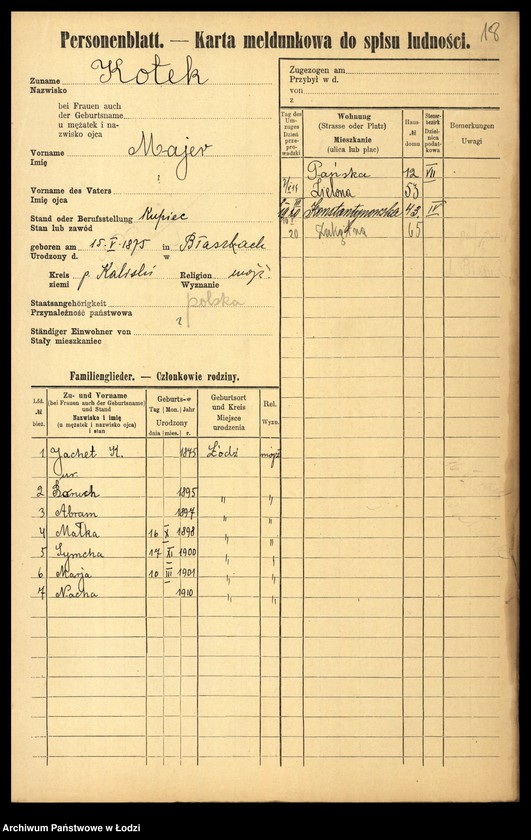 18
Personenblatt. — Karta meldunkowa do spisu ludności.
Zuname Kołek
Nazwisko
bei Frauen auch
der Geburtsname
u mężatek i na-
zwisko ojca
Vorname Majer
Imię
Vorname des Vaters
Imię ojca
Stand oder Berufsstellung Kupiec
Stan lub zawód
geboren am 15.V.1875 in Błaszkach
Urodzony d. w
Kreis p. Kaliski Religion mojż.
ziemi Wyznanie
Staatsangehörigkeit polska
Przynależność państwowa
Ständiger Einwohner von
Stały mieszkaniec
Zugezogen am
Przybył w d.
von
z
Tag des Um-zuges Dzień prze-prowadzki
Wohnung (Strasse oder Platz) Mieszkanie (ulica lub plac)
Haus № domu
Steuer-bezirk Dziel-nica podat-kowa
Bemerkungen Uwagi
Pańska 12 VII
Zielona 53
Konstantynowska 43 IV
20 65
Familienglieder. — Członkowie rodziny.
Lfd. № bież.
Zu- und Vorname (bei Frauen auch der Geburtsname) und Stand Nazwisko i imię (u mężatek i nazwisko ojca) i stan
Geburts- Tag Mon. Jahr Urodzony dnia mies. r.
Geburtsort und Kreis Miejsce urodzenia
Rel. Wyzn.
1 Jachet K. 1875 Łódź mojż
ur.
2 Boruch 1895 " "
3 Abram 1897 " "
4 Małka 16 X 1898 " "
5 Symcha 17 XI 1900 " "
6 Marja 10 III 1901 " "
7 Nacha 1910 " "
Archiwum Państwowe w Łodzi